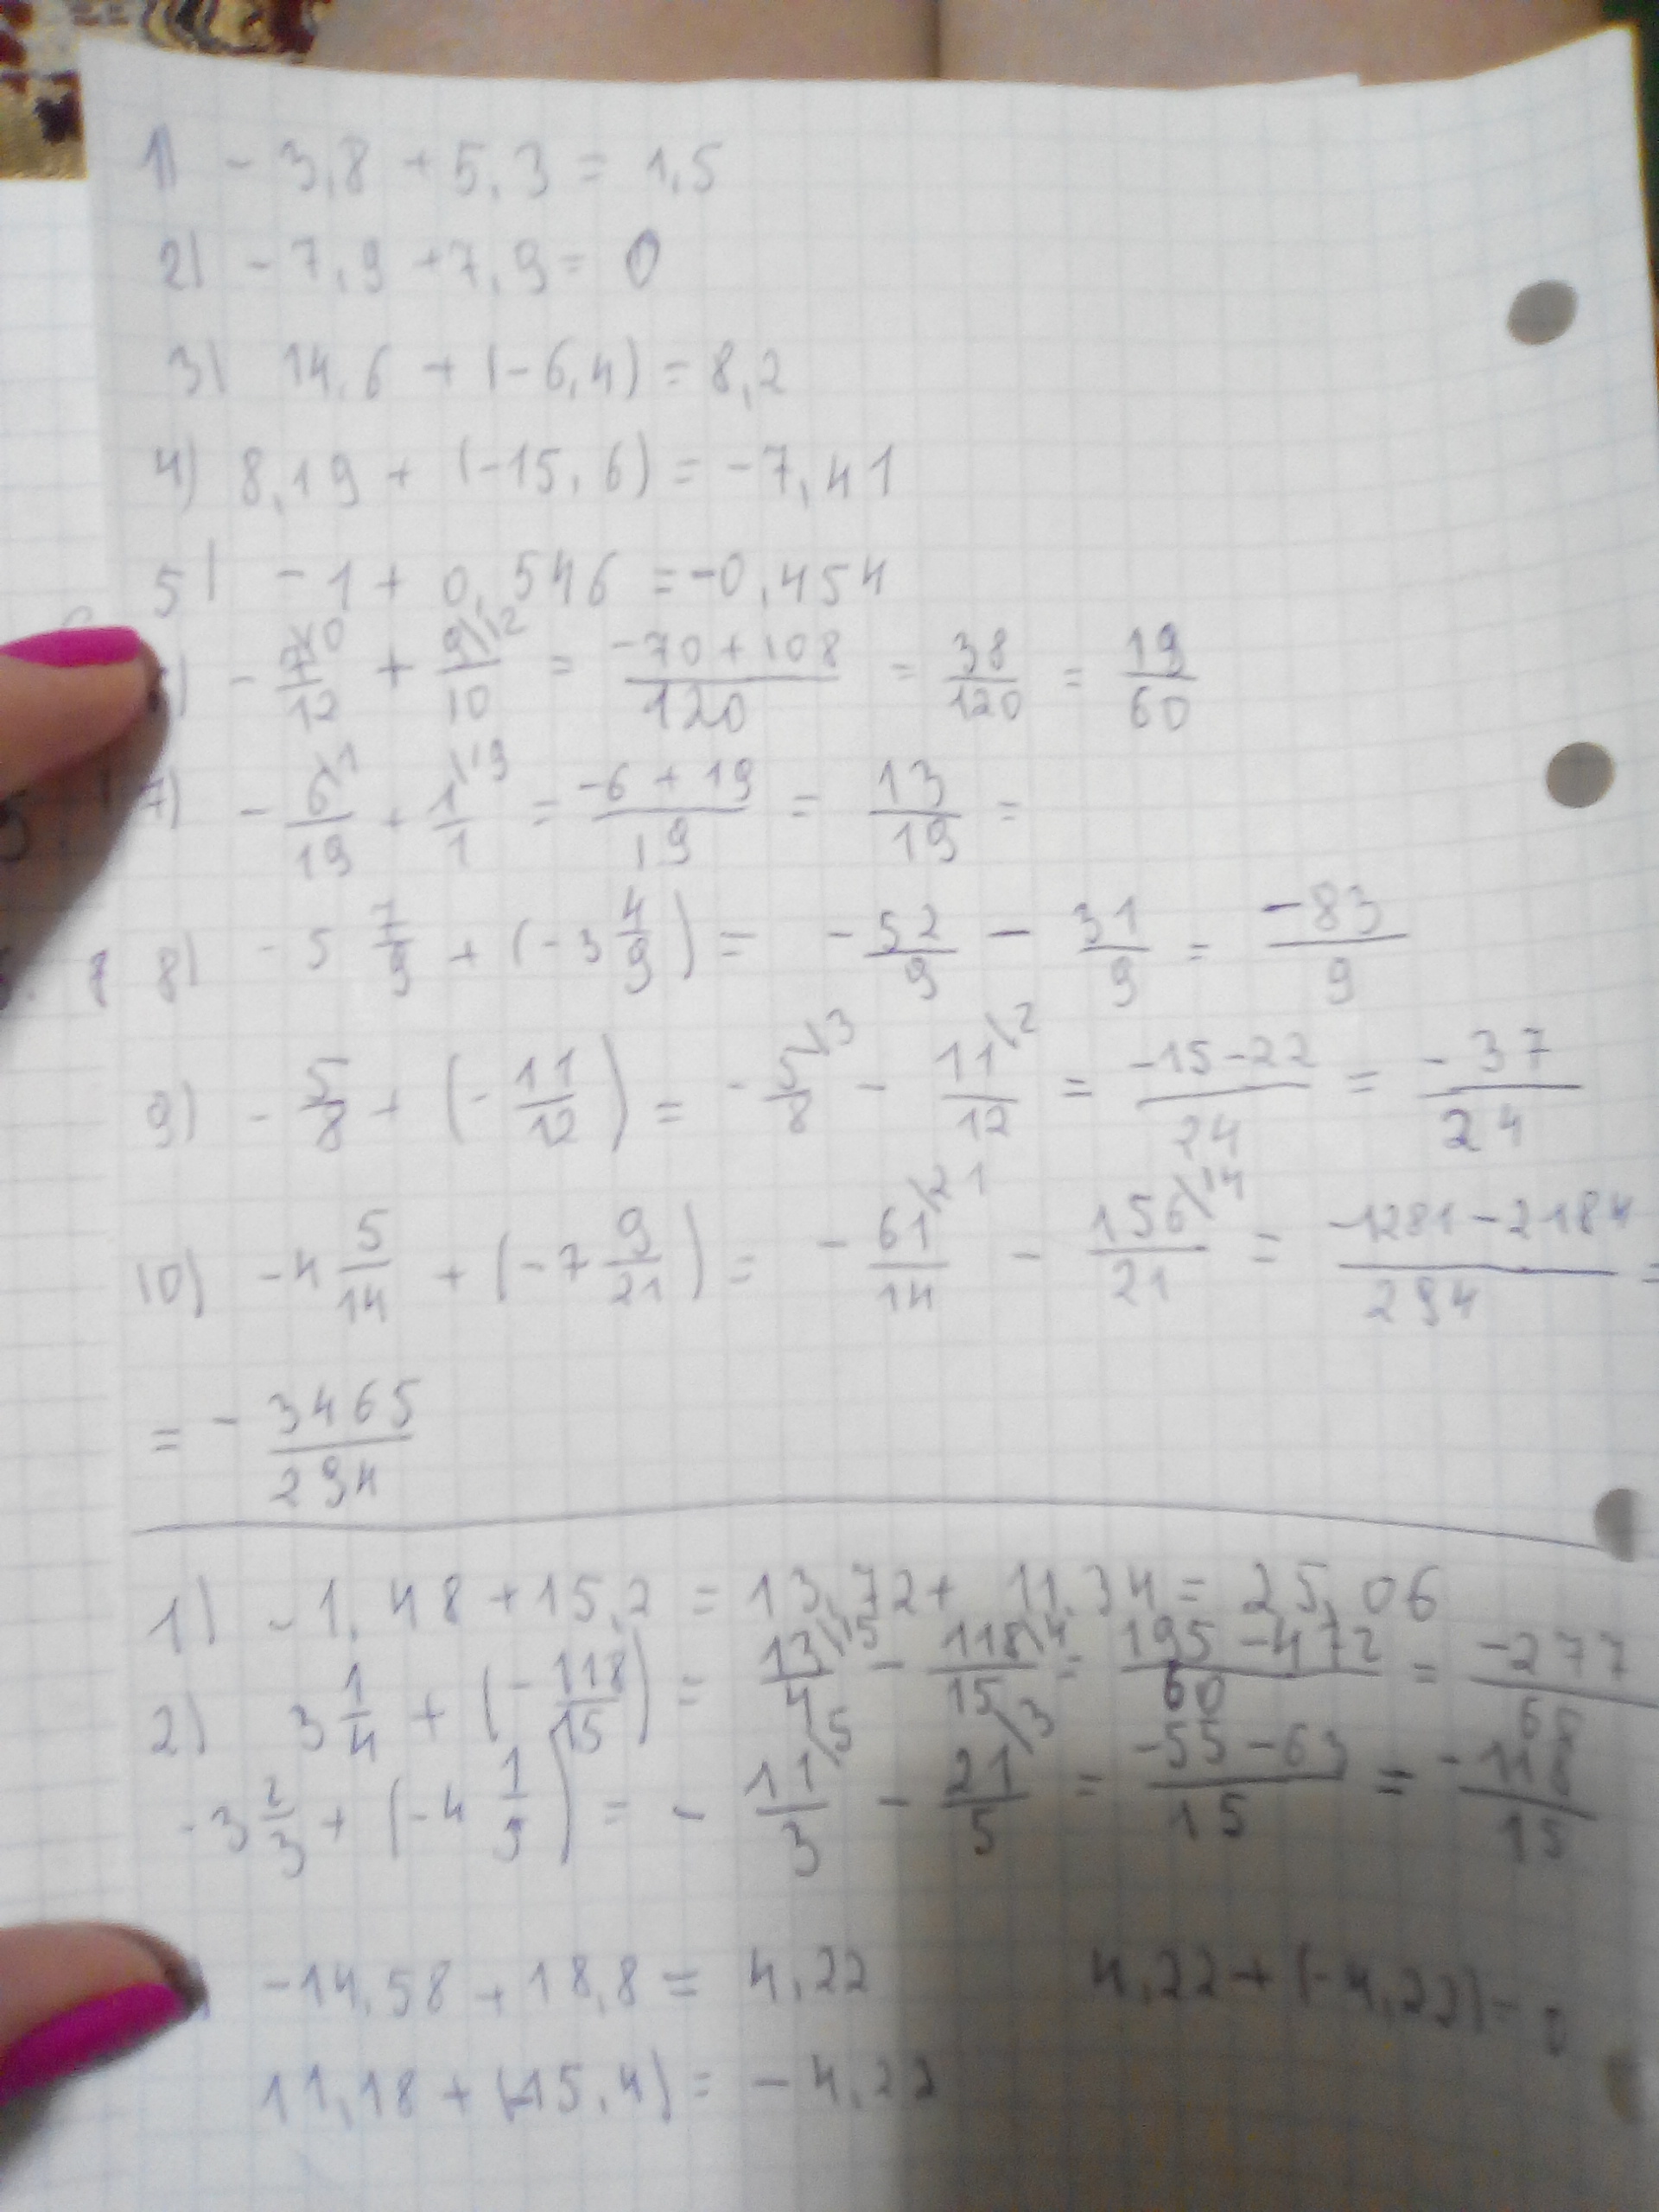 1) - 3,8 + 5,3 = 1,5
2) - 7,9 + 7,9 = 0
3) 14,6 + (-6,4) = 8,2
4) 8,19 + (-15,6) = -7,41
5) -1 + 0,546 = -0,454
) - 7\10/12 + 9\12/10 = -70+108/120 = 38/120 = 19/60
7) - 6\1/19 + 1\19/1 = -6+19/19 = 13/19 =
8) - 5 7/9 + (-3 4/9) = - 52/9 - 31/9 = -83/9
9) - 5/8 + (- 11/12) = - 5\3/8 - 11\2/12 = -15-22/24 = -37/24
10) -4 5/14 + (-7 9/21) = - 61\21/14 - 156\14/21 = -1281-2184/294 =
= - 3465/294
1) -1,48 + 15,2 = 13,72 + 11,34 = 25,06
2) 3 1/4 + (- 118/15) = 13\15/4 - 118\4/15 = 195-472/60 = -277/60
-3 2/3 + (-4 1/5) = - 11\5/3 - 21\3/5 = -55-63/15 = -118/15
) -14,58 + 18,8 = 4,22 4,22 + (-4,22) = 0
11,18 + (-15,4) = -4,22